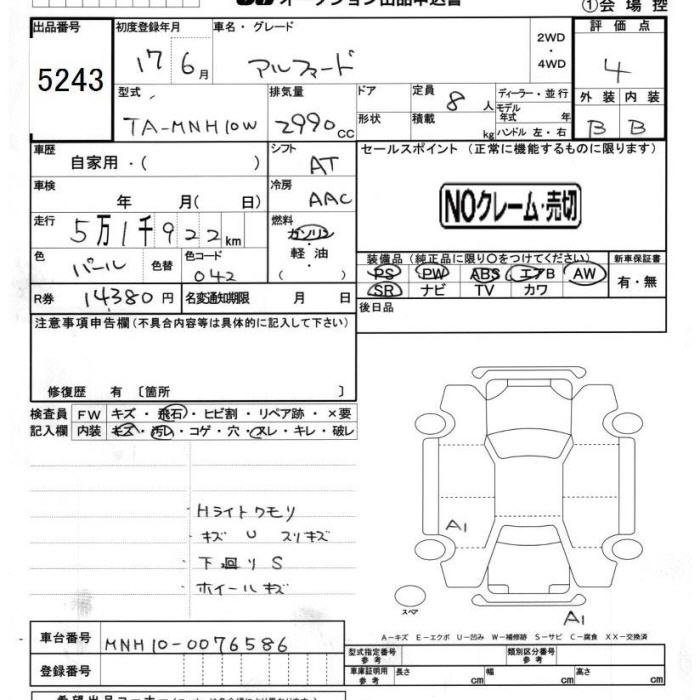 オークション出品申込書
①会場控
出品番号 初度登録年月 車名・グレード 2WD・4WD 評価点
5243 17 6月 アルファード 4
型式 排気量 ドア 定員 8人 ディーラー・並行 外装 内装
TA-MNH10W 2990cc 形状 積載 kg モデル年式 年 ハンドル 左・右 B B
車歴 シフト セールスポイント (正常に機能するものに限ります)
自家用・( ) AT
車検 冷房
年 月( 日) AAC NOクレーム・売切
走行 燃料
5万1千922km ガソリン・軽油・( )
色 色替 色コード 装備品 (純正品に限り○をつけてください) 新車保証書
パール 042 PS PW ABS エアB AW 有・無
SR ナビ TV カワ
R券 14380円 名変通知期限 月 日 後日品
注意事項申告欄(不具合内容等は具体的に記入して下さい)
修復歴 有 〔箇所 〕
検査員 FW キズ・飛石・ヒビ割・リペア跡・×要
記入欄 内装 キズ・汚レ・コゲ・穴・スレ・キレ・破レ
Hライトクモリ
キズ U スリキズ
下廻りS
ホイールキズ
A1
スペア
A1
A-キズ E-エクボ U-凹み W-補修跡 S-サビ C-腐食 XX-交換済
車台番号 MNH10-0076586
型式指定番号 参考 類別区分番号 参考
登録番号 車庫証明用 参考 長さ cm 幅 cm 高さ cm